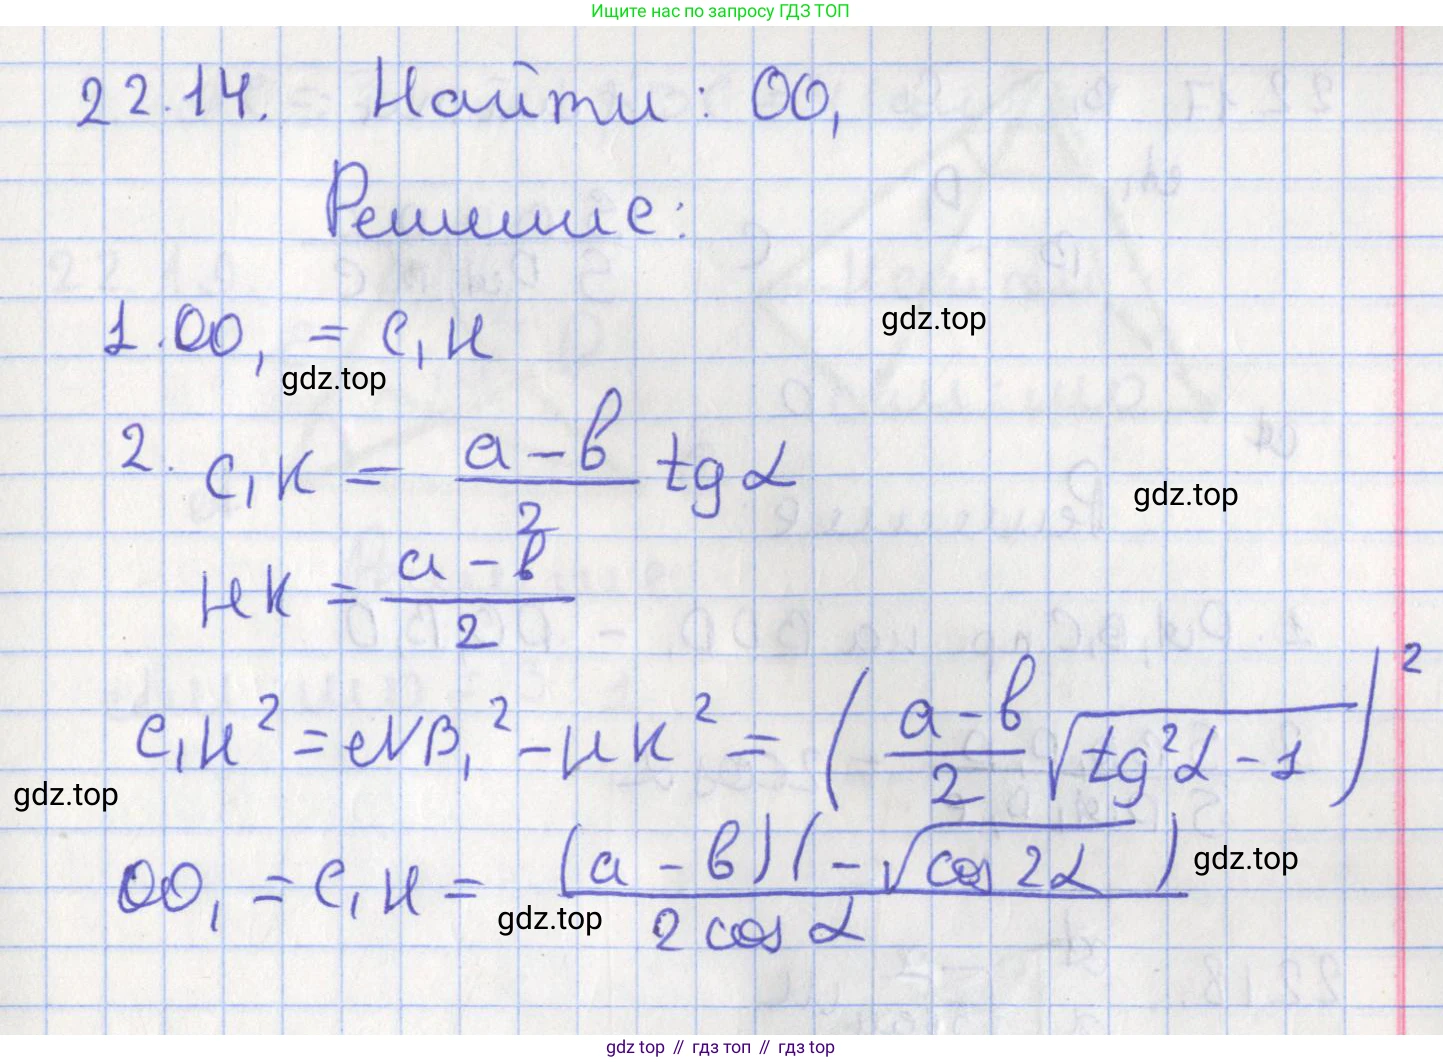 Ищите нас по запросу ГДЗ ТОП
22.14. Найти: OO₁
Решение:
1. OO₁ = C₁H
gdz.top
gdz.top
2. C₁K = (a - b)/2 tg α
gdz.top
HK = (a - b)/2
C₁H² = NB₁² - HK² = ((a - b)/2 √(tg²α - 1))²
gdz.top
OO₁ = C₁H = (a - b)(-√(cos 2α))/(2 cos α)
gdz.top
gdz.top
gdz top // гдз топ // gdz top